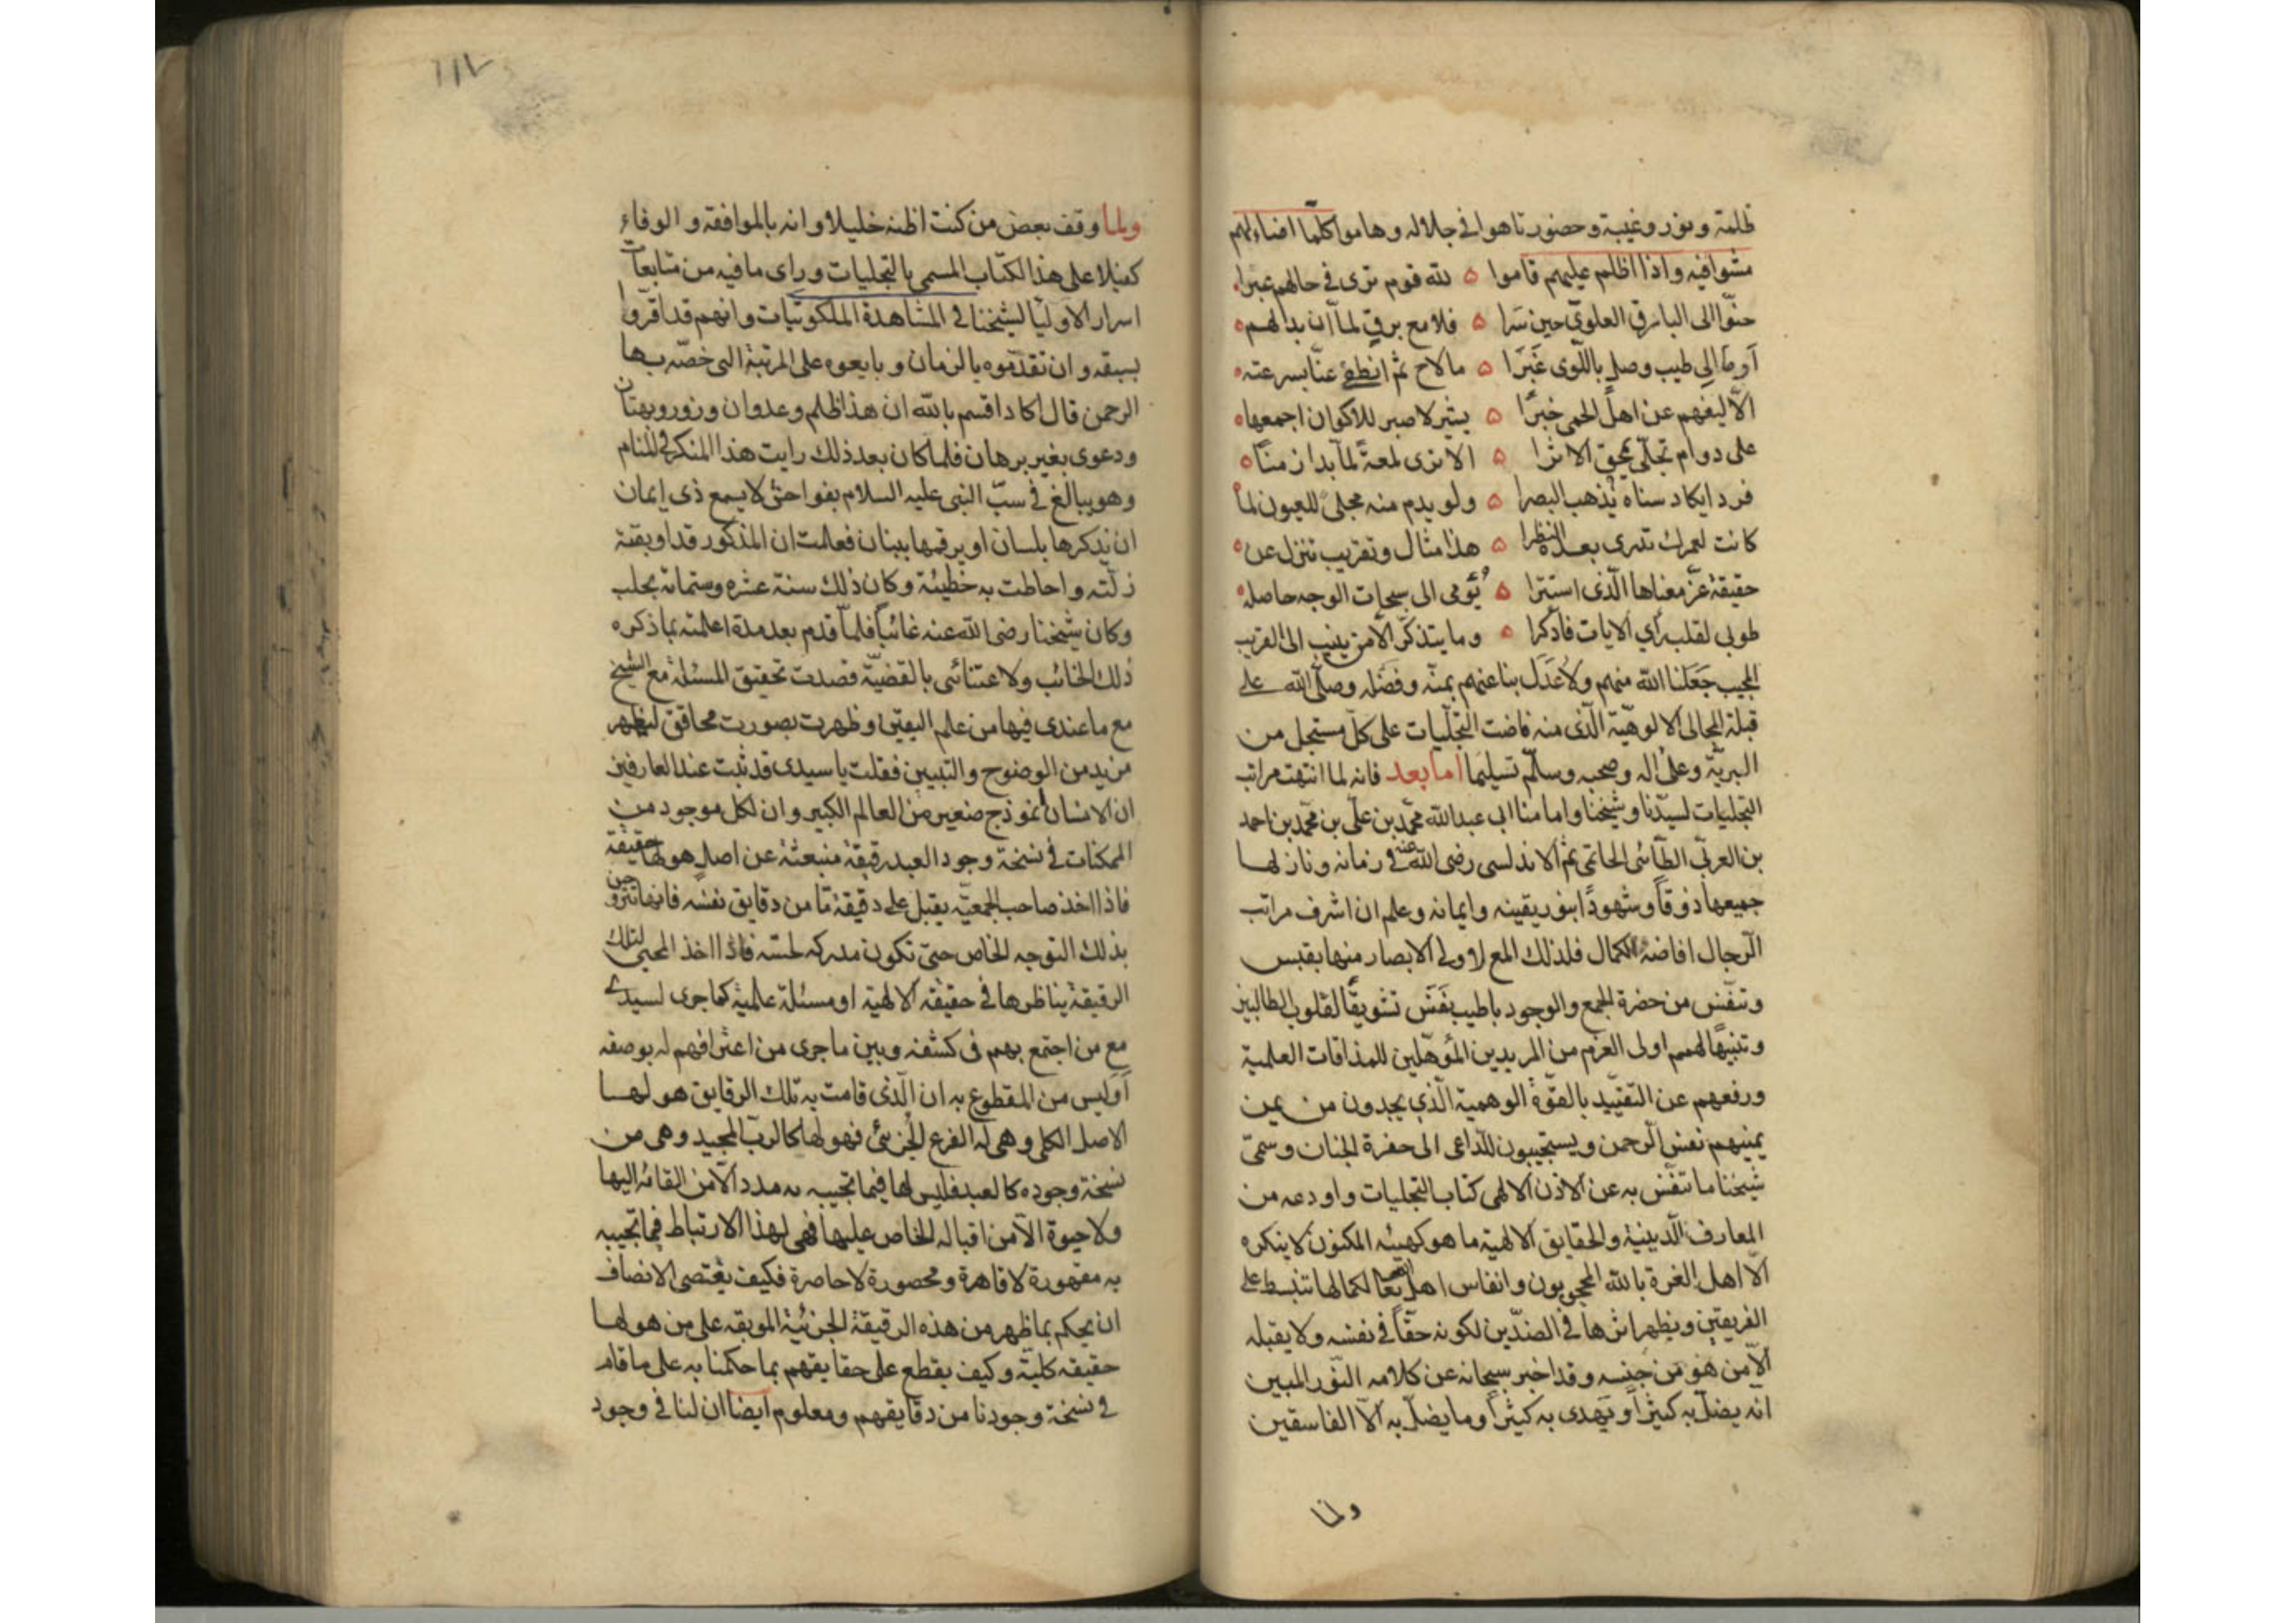 ظلمة ونور وغيبة وحضور تاهوا في جلاله وهاموا كلما اضاء لهم
مشوا فيه واذا اظلم عليهم قاموا ه لله قوم ترى في حالهم عبرا
حنّوا الى البارق العلوىّ حين سَرا ه فلامع برقٍ لما ان بدا لهم
أوما الى طيب وصل باللّوى غَبَرَا ه مالاح ثم انطفى عنا بسرعته
الّا ليفهم عن اهل الحمى خبرًا ه يشير لا صبر للاكوان اجمعها
على دوام تجلّى يمحق الاثرا ه الا ترى لمعة لما بدا زمنا
فردا يكاد سناه يُذهب البصرا ه ولو يدم منه مجلىً للعيون لما
كانت لعمرك تدرى بعده النظرا ه هذا مثال وتقريب تنزل عن
حقيقة عز معناها الّذى استترا ه يُومى الى سبحات الوجه حاصله
طوبى لقلب رأي الايات فادكرا ه وما يتذكّر الا من ينيب الى القريب
المجيب جَعَلَنا الله منهم ولا عَدَل بنا عنهم بمنّه وفضله وصلّى الله على
قبلة المجالى الالوهيّة الّذى منه فاضت التجلّيات على كلّ مستجل من
البريّة وعلى اله وصحبه وسلّم تسليما اما بعد فانه لما انتهت مراتب
التجليات لسيّدنا وشيخنا وامامنا ابى عبد الله محمّد بن علىّ بن محمّد بن احمد
بن العربىّ الطّائى الحاتمى ثم الاندلسى رضى الله عنه في زمانه ونازلها
جميعها ذوقًا وشهودًا بنور يقينه وايمانه وعلم ان اشرف مراتب
الرّجال افاضة الكمال فلذلك المع لاولى الابصار منها بقبس
وتنفّس من حضرة الجمع والوجود باطيب نَفَسٍ تشويقًا لقلوب الطالبين
وتنبيهًا لهمم اولى العزم من المريدين المؤهّلين للمذاقات العلمية
ورفعهم عن التقييد بالقوّة الوهمية الّذى يجدون من يمن
يمينهم نفس الرّحمن ويستجيبون للدّاعى الى حضرة الجنان وسمّى
شيخنا ما تنفّس به عن الاذن الالهى كتاب التجليات واودعه من
المعارف الّدينية والحقايق الالهية ما هو كهيئة المكنون لا ينكره
الّا اهل الغرة بالله المحجوبون وانفاس اهل الله تعا لكمالها تنبسط على
الفريقين ويظهر اثرها في الضدّين لكونه حقًا في نفسه ولا يقبله
الّا من هو من جنسه وقد اخبر سبحانه عن كلامه النّور المبين
انّه يضلّ به كثيرًا ويهدى به كثيرًا وما يضلّ به الّا الفاسقين
ولما
١١٧
ولما وقف بعض من كنت اظنه خليلا وانه بالموافقة والوفاء
كفيلا على هذا الكتاب المسمى بالتجليات وراى ما فيه من متابعات
اسرار الاوليا لشيخنا في المشاهدة الملكوتيات وانهم قد اقروا
بسبقه وان تقدّموه بالزمان وبايعوه على المرتبة التى خصّه بها
الرحمن قال اكاد اقسم بالله ان هذا ظلم وعدوان وزور وبهتان
ودعوى بغير برهان فلما كان بعد ذلك رايت هذا المنكر في المنام
وهو يبالغ في سبّ النبى عليه السلام بفواحش لا يسع ذى ايمان
ان يذكرها بلسان او يرقمها ببنان فعلمت ان المذكور قد اوبقته
زلّته واحاطت به خطيئة وكان ذلك سنة عشره وستمائة بحلب
وكان شيخنا رضى الله عنه غائبًا فلما قدم بعد مدة اعلمته بما ذكره
ذلك الخائب ولاعتنائى بالقضيّة قصدت تحقيق المسئلة مع الشيخ
مع ما عندى فيها من علم اليقين وظهرت بصورت محاقق ليظهر
مزيد من الوضوح والتبيين فقلت يا سيدى قد ثبت عند العارفين
ان الانسان أنموذج صغير من العالم الكبير وان لكل موجود من
الممكنات في نسخة وجود العبد رقيقة منبعثة عن اصل هو لها حقيقة
فاذا اخذ صاحب الجمعيّة يقبل على دقيقة مّا من دقايق نفسه فانها تتروحن
بذلك التوجه الخاص حتى تكون مدركه لحسّه فاذا اخذ المحيى لتلك
الرقيقة يناظرها في حقيقة الالهية او مسئلة علمية كما جرى لسيدى
مع من اجتمع بهم في كشفه وبين ما جرى من اعترافهم له بوصفه
أوليس من المقطوع به ان الّذى قامت به تلك الرقايق هو لها
الاصل الكلى وهى له الفرع الجزئى فهو لها كالربّ المجيد وهى من
نسخة وجوده كالعبد فليس لها فيما تجيبه به مدد الّا من القائه اليها
ولا حيوة الّا من اقباله الخاص عليها فهى لهذا الارتباط فيما تجيبه
به مقهورة لا قاهرة ومحصورة لا حاصرة فكيف يقتضى الانصاف
ان يحكم بما ظهر من هذه الرقيقة الجزئية الموبقه على من هو لها
حقيقه كلية وكيف يقطع على حقايقهم بما حكمنا به على ما قام
في نسخة وجودنا من دقايقهم ومعلوم ايضا ان لنا في وجود